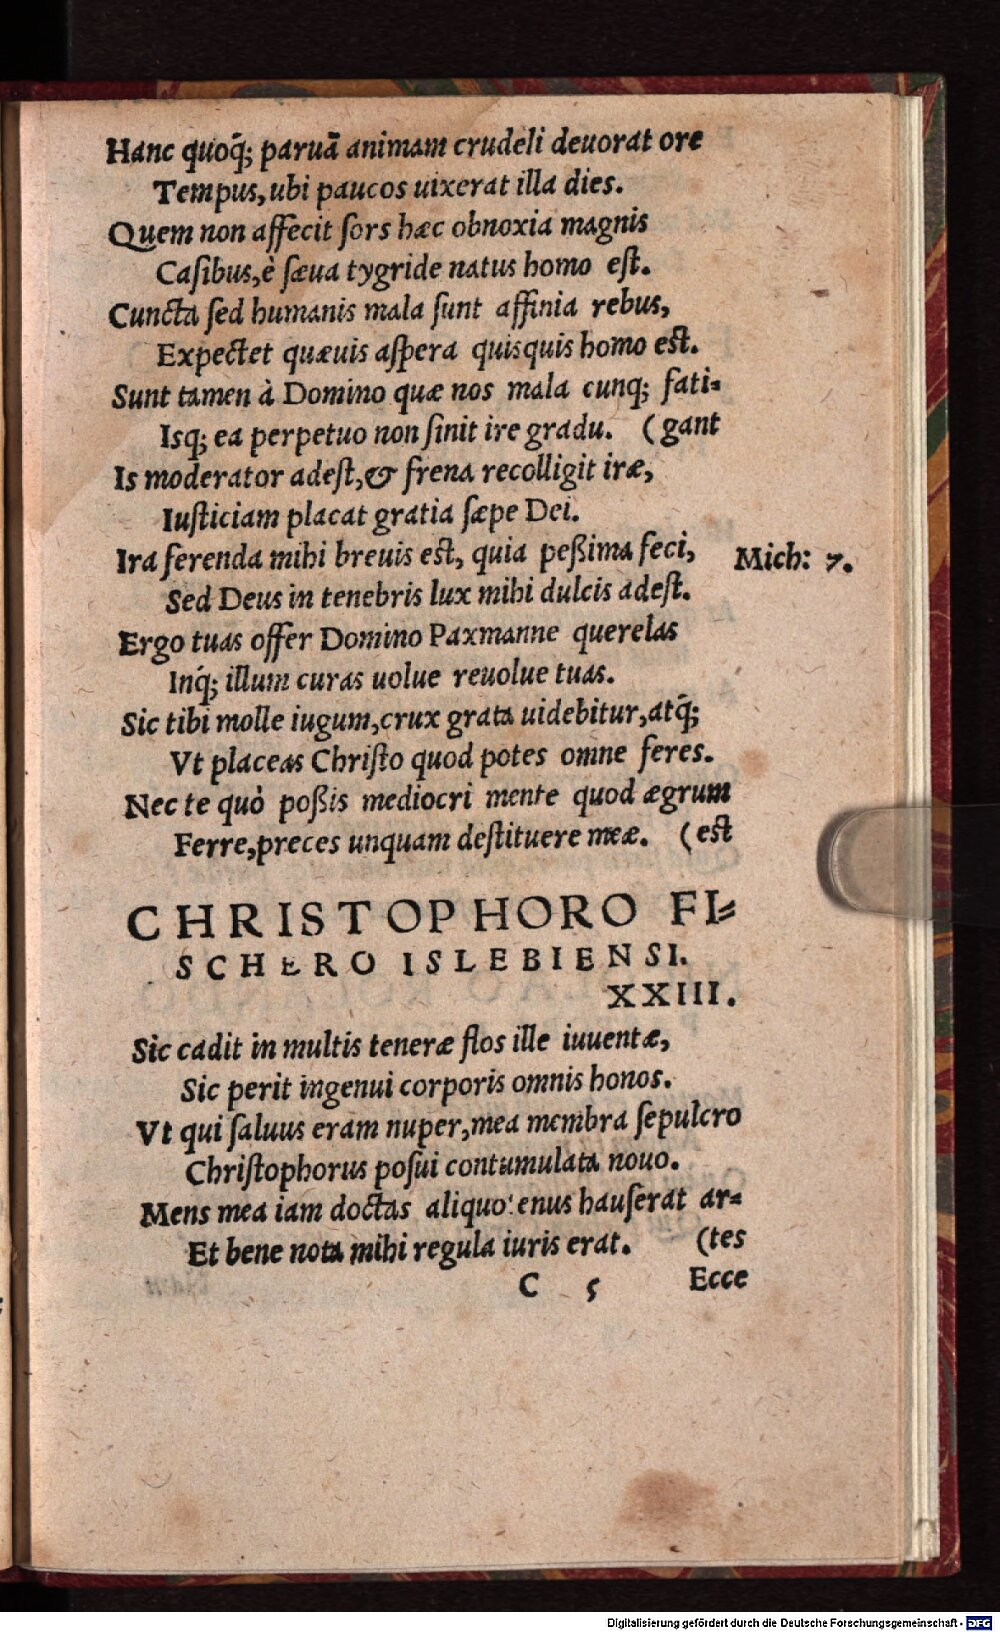 Hanc quoq̃; paruã animam crudeli deuorat ore
Tempus, ubi paucos uixerat illa dies.
Quem non affecit ſors hæc obnoxia magnis
Caſibus, è ſæua tygride natus homo eſt.
Cuncta ſed humanis mala ſunt affinia rebus,
Expectet quæuis aſpera quisquis homo eſt.
Sunt tamen à Domino quæ nos mala cunq; fati⸗
Isq; ea perpetuo non ſinit ire gradu. (gant
Is moderator adeſt, & frena recolligit iræ,
Iuſticiam placat gratia ſæpe Dei.
Ira ferenda mihi breuis eſt, quia peßima feci, Mich: 7.
Sed Deus in tenebris lux mihi dulcis adeſt.
Ergo tuas offer Domino Paxmanne querelas
Inq́; illum curas uolue reuolue tuas.
Sic tibi molle iugum, crux grata uidebitur, atq̃;
Vt placeas Chriſto quod potes omne feres.
Nec te quò poßis mediocri mente quod ægrum
Ferre, preces unquam deſtituere meæ. (eſt
CHRISTOPHORO FI⸗
SCHERO ISLEBIENSI.
XXIII.
Sic cadit in multis teneræ flos ille iuuentæ,
Sic perit ingenui corporis omnis honos.
Vt qui ſaluus eram nuper, mea membra ſepulcro
Chriſtophorus poſui contumulata nouo.
Mens mea iam doctas aliquotenus hauſerat ar⸗
Et bene nota mihi regula iuris erat. (tes
C 5 Ecce
Digitalisierung gefördert durch die Deutsche Forschungsgemeinschaft - DFG